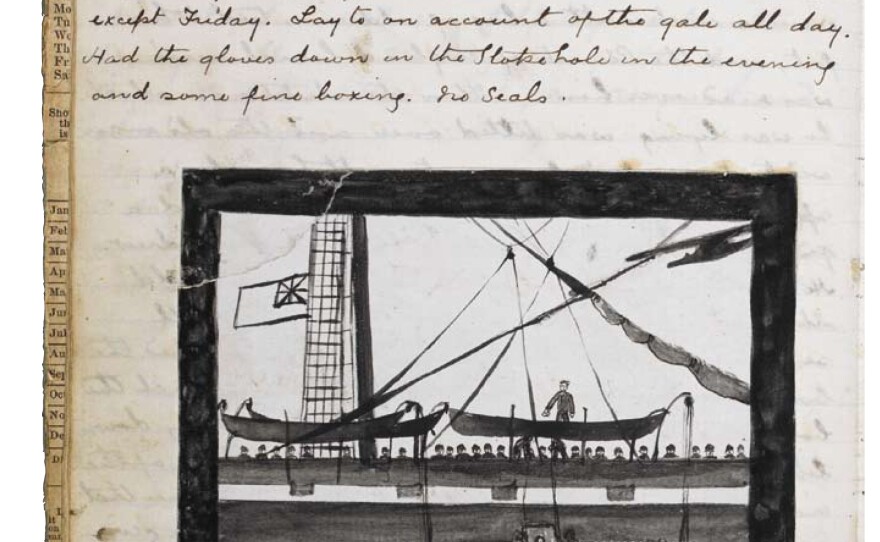 Mo
Tu
We
Th
Fr
Sa
except Friday. Lay to on account of the gale all day.
Had the gloves down in the Stokehole in the evening
and some fine boxing. No Seals.
Sho
th
is
Jan
Feb
Ma
Ap
Ma
Jun
Jul
Au
Sep
Oc
No
De
D
1